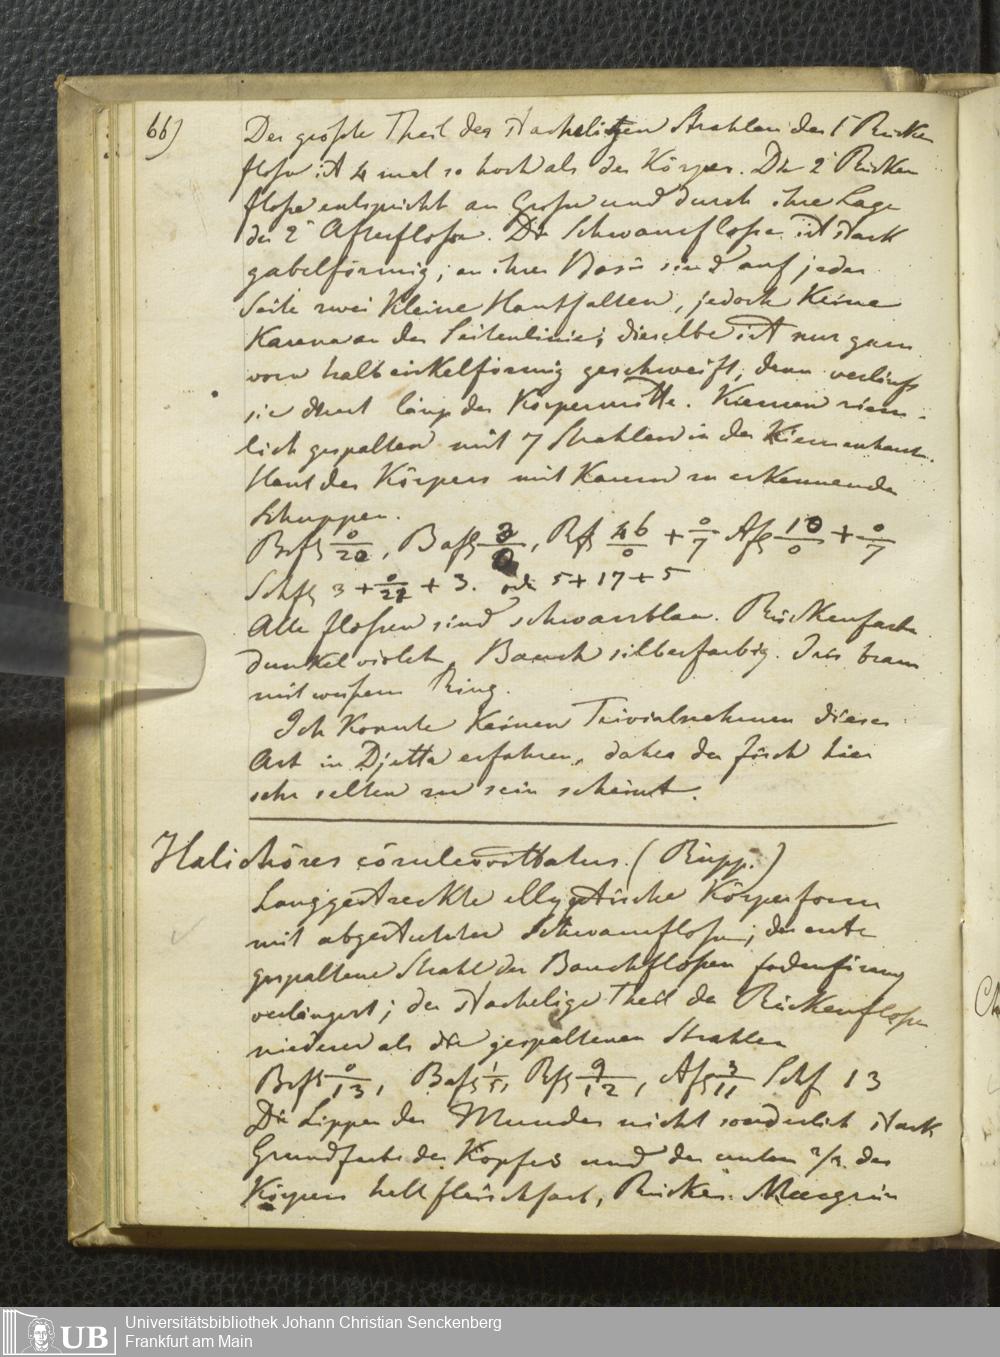 66)
Der groste Theil des stachelichen Strahlen der 1 Rücken
flosse ist 4 mal so hoch als der Körper. Die 2 Rücken
flosse entspricht an Grosse und durch ihre Lage
der 2 Afterflosse. Die Schwanzflosse ist stark
gabelförmig, an ihrer Basis sind auf jeder
Seite zwei kleine Hautfalten, jedoch keine
Karena an der Seitenlinie; dieselbe ist nur ganz
vorn halbzirkelförmig geschweift, dann verläuft
sie dicht längs der Körpermitte. Kiemen ziem-
lich gespalten mit 7 Strahlen in der Kiemenhaut.
Haut des Körpers mit kaum zu erkennende
Schuppen.
Brfl 0/20, Bafl 3/0, Rfl 46/0 + 0/7 Afl 10/0 + 0/7
Schfl 3 + 0/27 + 3. od 5+17+5
Alle flossen sind schwarzblau. Rückenfarbe
dunkelviolet, Bauch silberfarbig. Iris braun
mit weissem Ring.
Ich konnte keinen Trivialnahmen dieser
Art in Djetta erfahren, daher der fisch hier
sehr selten zu sein scheint.
Halichöres cöruleovittatus. (Rüpp.)
Langgestreckte ellyptische Körperform
mit abgestutzter Schwanzflosse; der erste
gespaltene Strahl der Bauchflossen fadenförmig
verlängert; der stachelige Theil der Rückenflosse
niederer als die gespaltenen Strahlen
Brfl 0/13, Bafl 1/5, Rfl 9/12, Afl 3/11 Schf 13
Die Lippen des Mundes nicht sonderlich stark
Grundfarbe des Kopfes und der untern 2/3 des
Körpers hell fleischfarb, Rücken Meergrün
UB
Universitätsbibliothek Johann Christian Senckenberg
Frankfurt am Main